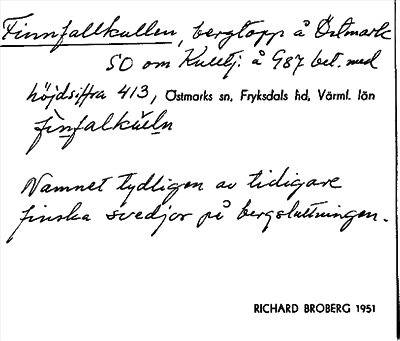 Finnfallkullen, bergtopp å Östmark
SO om Kulltj. å G87 bet. med
höjdsiffra 413, Östmarks sn, Fryksdals hd, Värml. län
fìnfalkúeln
Namnet tydligen av tidigare
finska svedjor på bergsluttningen.
RICHARD BROBERG 1951